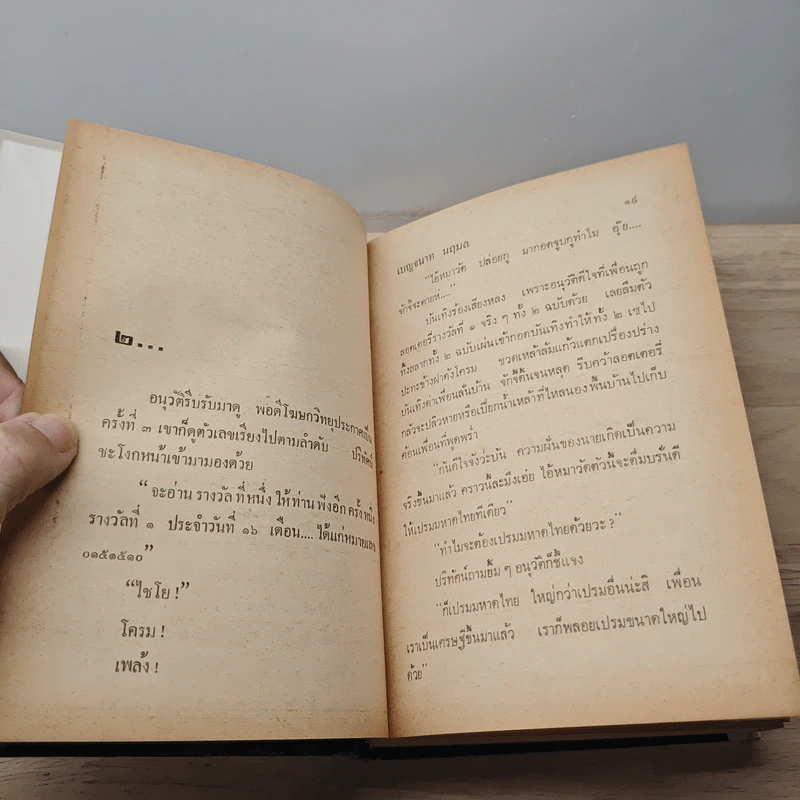 ๒...
อนุวัติรีบรับมาดู พอดีโฆษกวิทยุประกาศเป็น
ครั้งที่ ๓ เขาก็ดูตัวเลขเรียงไปตามลำดับ ปริทัศน์
ชะโงกหน้าเข้ามามองด้วย
“จะอ่าน รางวัล ที่หนึ่ง ให้ท่าน ฟังอีก ครั้ง หนึ่ง
รางวัลที่ ๑ ประจำวันที่ ๑๖ เดือน.... ได้แก่หมายเลข
๐๑๕๑๕๑๐”
“ไชโย !”
โครม !
เพล้ง !
๑๙
เบญจนาท นฤมล
“ไอ้หมาวัด ปล่อยกู มากอดจูบกูทำไม อุ๊ย....
จักจี้จะตายห่....”
บันเทิงร้องเสียงหลง เพราะอนุวัติดีใจที่เพื่อนถูก
ลอตเตอรี่รางวัลที่ ๑ จริง ๆ ทั้ง ๒ ฉบับด้วย เลยลืมตัว
ทิ้งสลากทั้ง ๒ ฉบับเผ่นเข้ากอดบันเทิงทำให้ทั้ง ๒ เซไป
ปะทะข้างฝาดังโครม ขวดเหล้าล้มแก้วแตกเปรื่องปร่าง
บันเทิงด่าเพื่อนลั่นบ้าน จักจี้ดิ้นจนหลุด รีบคว้าลอตเตอรี่
กลัวจะปลิวหายหรือเปียกน้ำเหล้าที่ไหลนองพื้นบ้านไปเก็บ
ค้อนเพื่อนที่พูดพร่ำ
“กันดีใจจังว่ะบัน ความฝันของนายเกิดเป็นความ
จริงขึ้นมาแล้ว คราวนี้ละมึงเอ๋ย ไอ้หมาวัดตัวนี้จะดื่มบรั่นดี
ให้เปรมมหาดไทยทีเดียว”
“ทำไมจะต้องเปรมมหาดไทยด้วยวะ ?”
ปริทัศน์ถามยิ้ม ๆ อนุวัติก็ชี้แจง
“ก็เปรมมหาดไทย ใหญ่กว่าเปรมอื่นน่ะสิ เพื่อน
เราเป็นเศรษฐีขึ้นมาแล้ว เราก็พลอยเปรมขนาดใหญ่ไป
ด้วย”